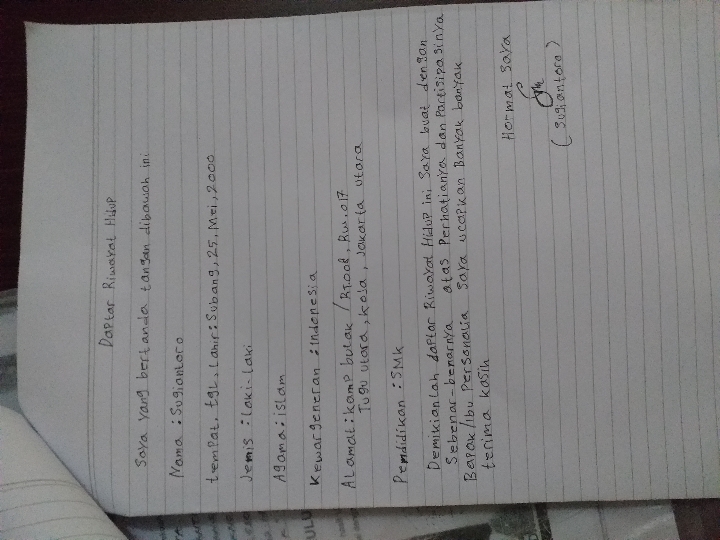 Daptar Riwayat Hidup
Saya yang bertanda tangan dibawah ini
Nama : Sugiantoro
tempat. tgl. Lahir : Subang, 25, Mei, 2000
Jenis : laki-laki
Agama : islam
Kewargeneran : Indonesia
ALamat : kamp bulak / RT.008, RW. 017
Tugu utara, koja, Jakarta utara
Pendidikan : SMK
Demikianlah daptar Riwayat Hidup ini Saya buat dengan
Sebenar-benarnya atas Perhatianya dan Partisipasinya
Bapak/ibu Personalia Saya ucapkan Banyak banyak
terima kasih
Hormat saya
(Sugiantoro)
ULU